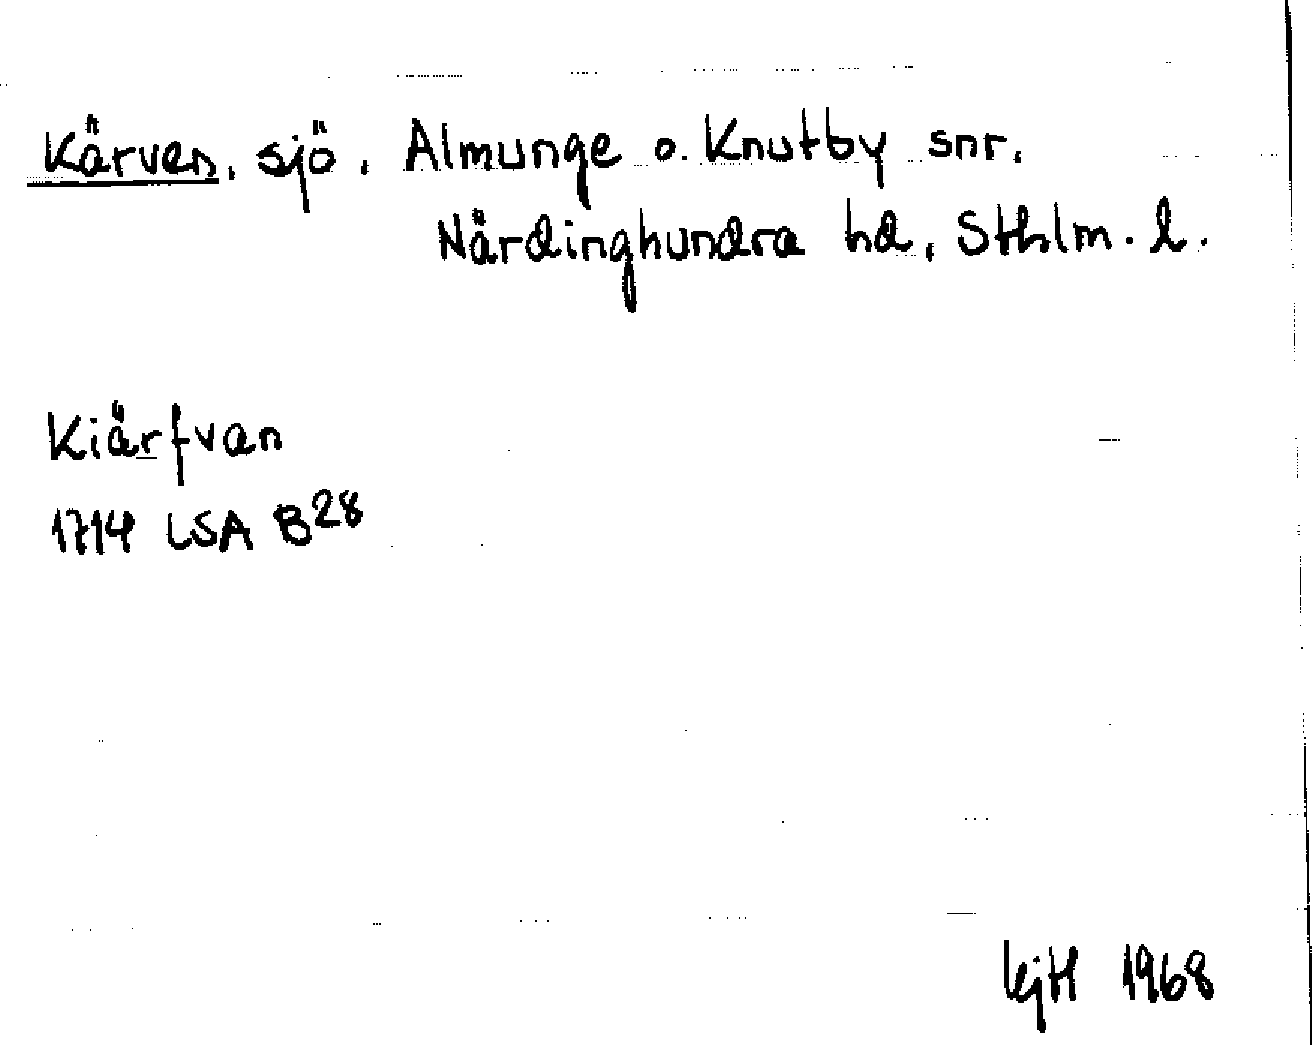 Kärven, sjö, Almunge o. Knutby snr,
Närdinghundra hd, Sthlm. l.
Kiärfvan
1714 LSA B28
KjH 1968